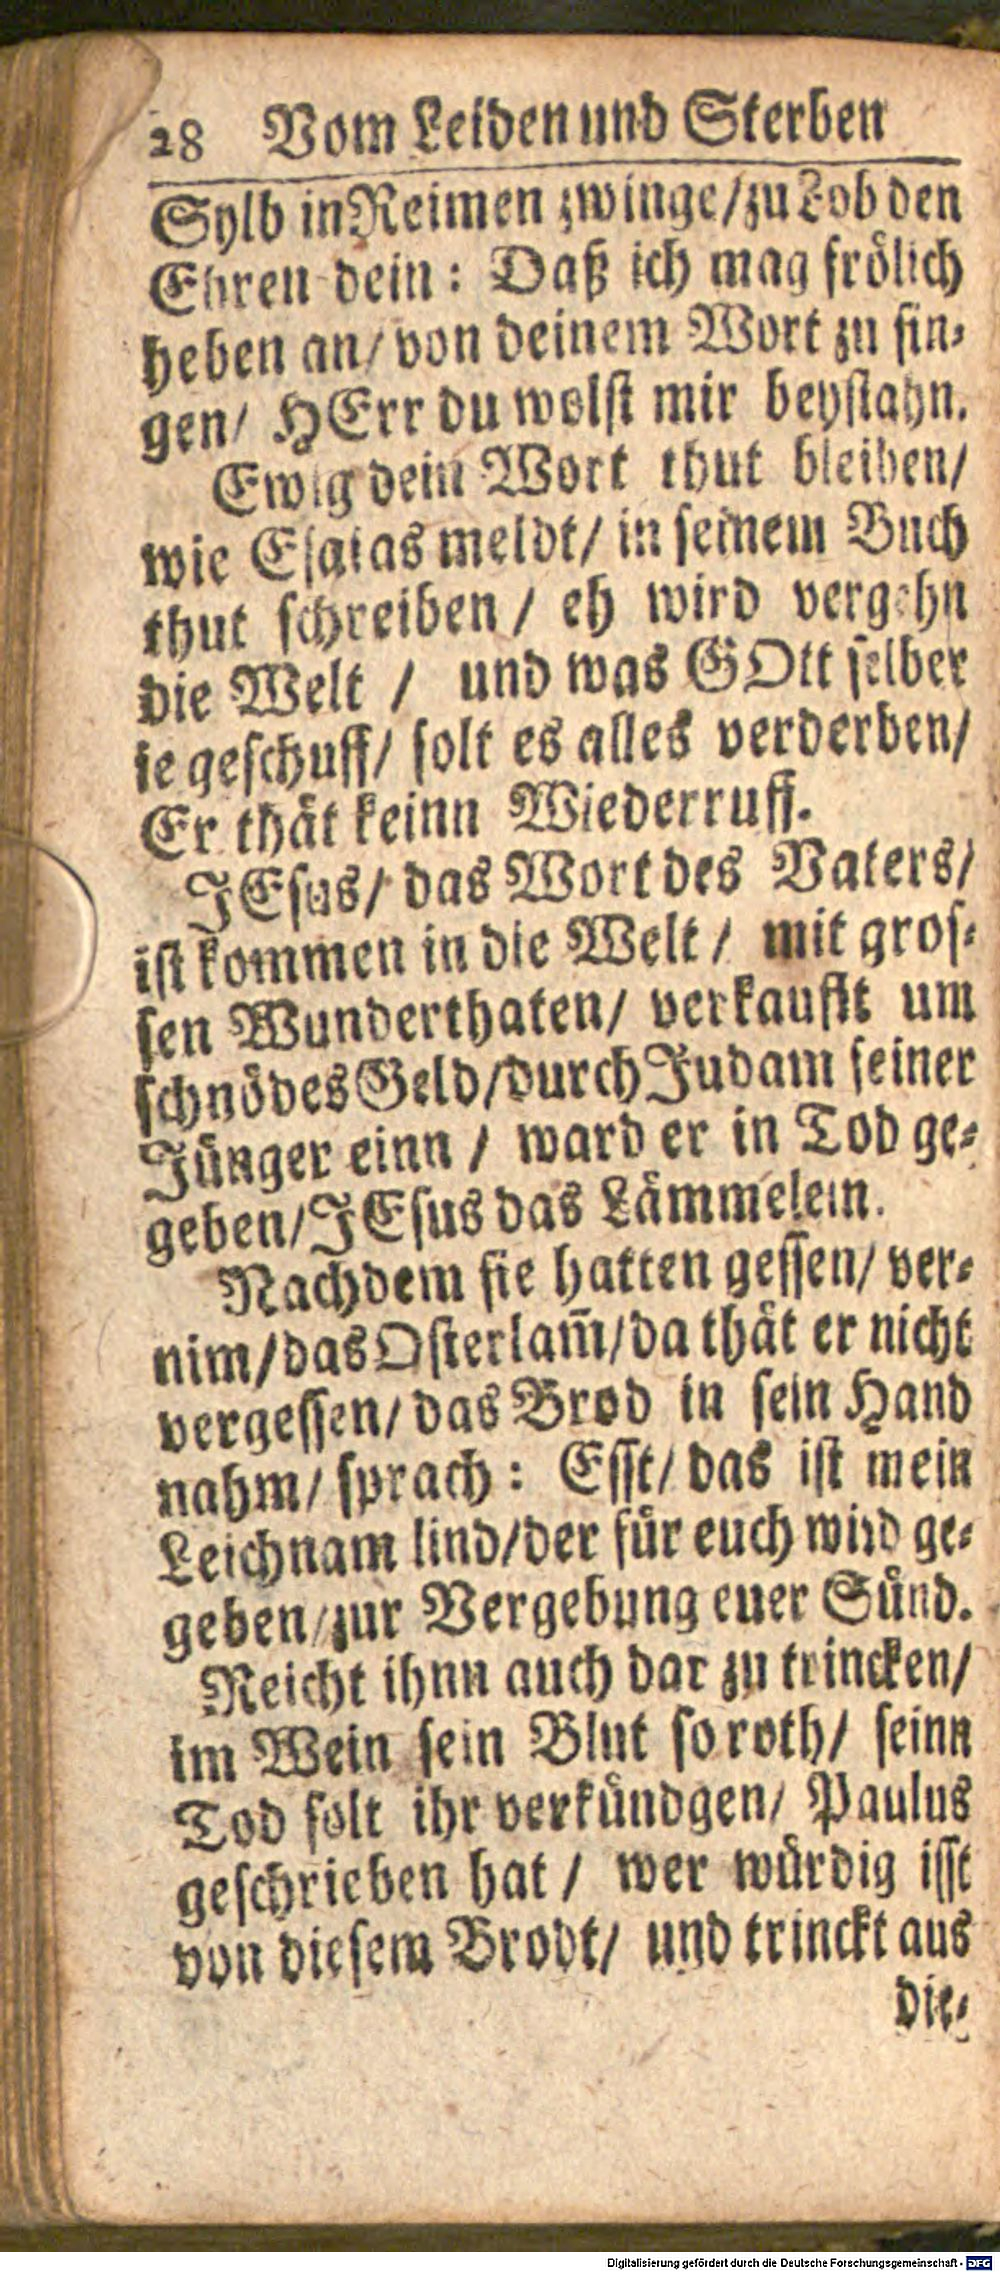 28 Vom Leiden und Sterben
Sylb in Reimen zwinge/zu Lob den
Ehren dein: Daß ich mag frölich
heben an/ von deinem Wort zu sin-
gen/ HErr du wolst mir beystahn.
Ewig dein Wort thut bleiben/
wie Esaias meldt/ in seinem Buch
thut schreiben / eh wird vergehn
die Welt / und was GOtt selber
ie geschuff/ solt es alles verderben/
Er thät keinn Wiederruff.
JEsus/ das Wort des Vaters/
ist kommen in die Welt / mit gros-
sen Wunderthaten/ verkaufft um
schnödes Geld/durch Judam seiner
Jünger einn / ward er in Tod ge-
geben/JEsus das Lämmelein.
Nachdem sie hatten gessen/ ver-
nim/das Osterlam̃/da thät er nicht
vergessen/ das Brod in sein Hand
nahm/ sprach: Esst/ das ist mein
Leichnam lind/der für euch wird ge-
geben/zur Vergebung euer Sünd.
Reicht ihnn auch dar zu trincken/
im Wein sein Blut so roth/ seinn
Tod solt ihr verkündgen/ Paulus
geschrieben hat / wer würdig isst
von diesem Brodt/ und trinckt aus
die-
Digitalisierung gefördert durch die Deutsche Forschungsgemeinschaft - DFG